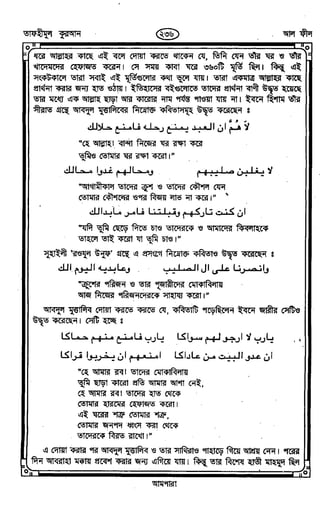 তাফহীমুল কুরআন
২৩৬
আল ফীল
ধরে আল্লাহর কাছে এই বলে দোয়া করতে থাকেন যে, তিনি যেন তাঁর ঘর ও তাঁর
খাদেমদের হেফাজত করেন। সে সময় কাবা ঘরে ৩৬০টি মূর্তি ছিল। কিন্তু এই
সংকটকালে তারা সবাই এই মূর্তিগুলোর কথা ভুলে যায়। তারা একমাত্র আল্লাহর কাছে
প্রার্থনা করার জন্য হাত ওঠায়। ইতিহাসের বইগুলোতে তাদের প্রার্থনা বাণী উদ্ধৃত হয়েছে
তার মধ্যে এক আল্লাহ ছাড়া আর কারোর নাম পর্যন্ত পাওয়া যায় না। ইবনে হিশাম তাঁর
সীরাত গ্রন্থে আবদুল মুত্তালিবের নিম্নোক্ত কবিতাসমূহ উদ্ধৃত করেছেন ঃ
لا هُم ان العبد يمنع رحله فامنع حلالك
"হে আল্লাহ! বান্দা নিজের ঘর রক্ষা করে
তুমিও তোমার ঘর রক্ষা করো।"
لا يغلبن صليبهم ومحالهم غدوا محالك
"আগামীকাল তাদের ক্রুশ ও তাদের কৌশল যেন
তোমার কৌশলের ওপর বিজয় লাভ না করে।"
ان كنت تاركهم وقبلتنا فامر مابدالك
"যদি তুমি ছেড়ে দিতে চাও তাদেরকে ও আমাদের কিবলাহকে
তাহলে তাই করো যা তুমি চাও।"
সুহাইলী 'রওযুল উনুফ' গ্রন্থে এ প্রসংগে নিম্নোক্ত কবিতাও উদ্ধৃত করেছেন ঃ
وانصرنا على ال الصليب وعابديه اليوم الك
"ক্রুশের পরিজন ও তার পূজারীদের মোকাবিলায়
আজ নিজের পরিজনদেরকে সাহায্য করো।"
আবদুল মুত্তালিব দোয়া করতে করতে যে, কবিতাটি পড়েছিলেন ইবনে জারীর সেটিও
উদ্ধৃত করেছেন। সেটি হচ্ছে ঃ
يارب لا ارجو لهم سواكا يارب فامنع منهم حماكا
ان عدو البيت من عاداكا امنعهم ان يخربوا قراكا
"হে আমার রব! তাদের মোকাবিলায়
তুমি ছাড়া কারো প্রতি আমার আশা নেই,
হে আমার রব! তাদের হাত থেকে
তোমার হারমের হেফাজত করো।
এই ঘরের শত্রু তোমার শত্রু,
তোমার জনপদ ধ্বংস করা থেকে
তাদেরকে বিরত রাখো।"
এ দোয়া করার পর আবদুল মুত্তালিব ও তার সাথিরাও পাহাড়ে গিয়ে আশ্রয় নেন। পরের
দিন আবরাহা মক্কায় প্রবেশ করার জন্য এগিয়ে যায়। কিন্তু তার বিশেষ হাতী মাহমুদ ছিল
আমপারা